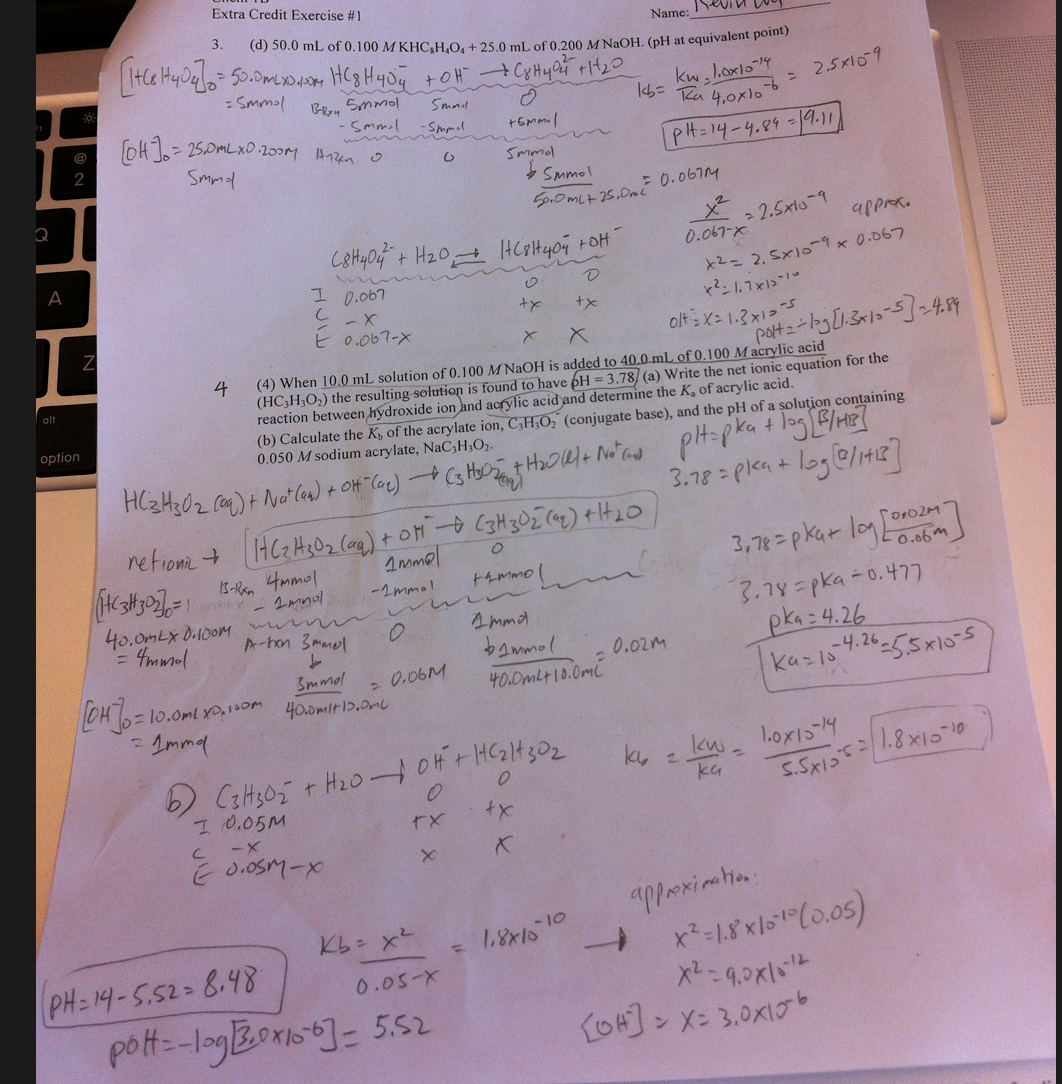 Extra Credit Exercise #1
Name:
3. (d) 50.0 mL of 0.100 M KHC₈H₄O₄ + 25.0 mL of 0.200 M NaOH. (pH at equivalent point)
[HC₈H₄O₄⁻]₀ = 50.0mL x 0.100M
= 5mmol
HC₈H₄O₄⁻ + OH⁻ → C₈H₄O₄²⁻ + H₂O
B-Rxn 5mmol 5mmol 0
-5mmol -5mmol +5mmol
[OH⁻]₀ = 25.0mL x 0.200M
5mmol
A-rxn 0 0 5mmol
↓ 5mmol / 50.0mL + 25.0mL = 0.067M
kb = kw/ka = 1.0x10⁻¹⁴ / 4.0x10⁻⁶ = 2.5x10⁻⁹
pH = 14 - 4.89 = 9.11
C₈H₄O₄²⁻ + H₂O ⇌ HC₈H₄O₄⁻ + OH⁻
I 0.067 0 0
C -x +x +x
E 0.067-x x x
x² / 0.067-x = 2.5x10⁻⁹ approx.
x² = 2.5x10⁻⁹ x 0.067
x² = 1.7x10⁻¹⁰
OH⁻ = x = 1.3x10⁻⁵
pOH = -log[1.3x10⁻⁵] = 4.89
4 (4) When 10.0 mL solution of 0.100 M NaOH is added to 40.0 mL of 0.100 M acrylic acid
(HC₃H₃O₂) the resulting solution is found to have pH = 3.78. (a) Write the net ionic equation for the
reaction between hydroxide ion and acrylic acid and determine the Kₐ of acrylic acid.
(b) Calculate the K_b of the acrylate ion, C₃H₃O₂⁻ (conjugate base), and the pH of a solution containing
0.050 M sodium acrylate, NaC₃H₃O₂.
HC₃H₃O₂ (aq) + Na⁺(aq) + OH⁻(aq) → C₃H₃O₂⁻(aq) + H₂O(l) + Na⁺(aq)
pH = pKa + log[B/HB]
3.78 = pka + log[B/HB]
net ionic → HC₃H₃O₂ (aq) + OH⁻ → C₃H₃O₂⁻(aq) + H₂O
B-Rxn 4mmol 1mmol 0
-1mmol -1mmol +1mmol
A-rxn 3mmol 0 1mmol
[HC₃H₃O₂]₀ =
40.0mL x 0.100M
= 4mmol
↓ 3mmol / 40.0ml + 10.0mL = 0.06M
↓ 1mmol / 40.0mL + 10.0mL = 0.02M
[OH⁻]₀ = 10.0mL x 0.100M
= 1mmol
3.78 = pka + log[0.02M / 0.06M]
3.78 = pka - 0.477
pka = 4.26
ka = 10⁻⁴·²⁶ = 5.5x10⁻⁵
b) C₃H₃O₂⁻ + H₂O → OH⁻ + HC₂H₃O₂
I 0.05M 0 0
C -x +x +x
E 0.05M-x x x
kb = kw/ka = 1.0x10⁻¹⁴ / 5.5x10⁻⁵ = 1.8x10⁻¹⁰
Kb = x² / 0.05-x = 1.8x10⁻¹⁰ →
approximation:
x² = 1.8x10⁻¹⁰(0.05)
x² = 9.0x10⁻¹²
[OH⁻] = x = 3.0x10⁻⁶
pH = 14 - 5.52 = 8.48
pOH = -log[3.0x10⁻⁶] = 5.52